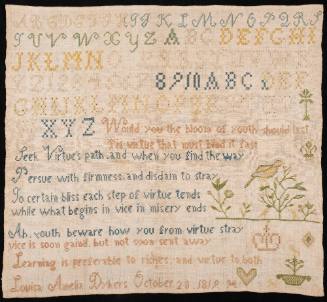 ABCDEFGHIJKLMNOPQRS
TUVWXYZABCDEFGHI
JKLMN
8910ABC DEF
GHIJKLMNOPQR
XYZ Would you the bloom of youth should last
Tis virtue that must bind it fast
Seek Virtue's path, and when you find the way
Persue with firmness, and disdain to stray
To certain bliss each step of virtue tends
while what begins in vice in misery ends
Ah, youth beware how you from virtue stray
vice is soon gaind, but not soon sent away
Learning is preferable to riches, and virtue to both
Louisa Amelia October 20 1819